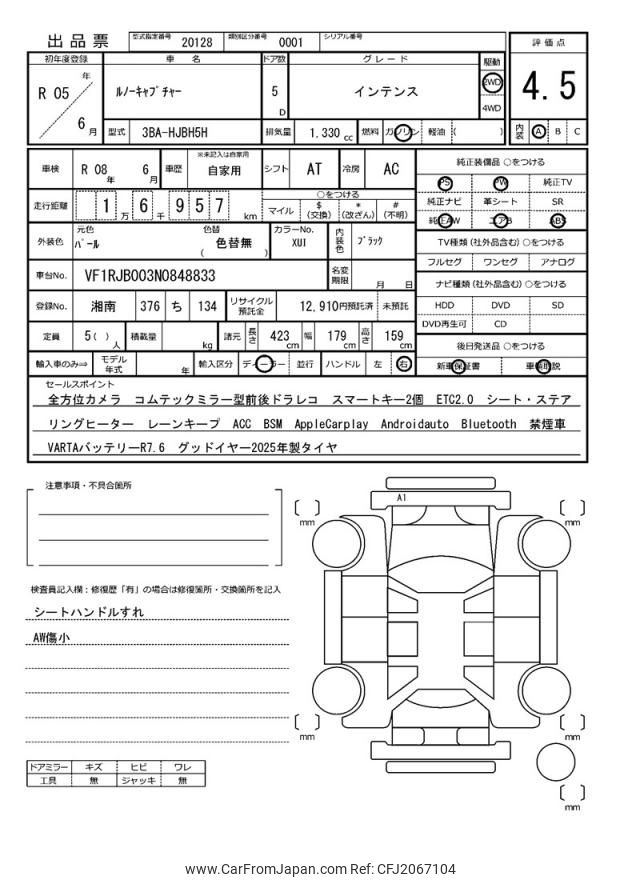 出品票 型式指定番号 20128 類別区分番号 0001 シリアル番号
評価点
4.5
内装 A B C
初年度登録 車名 ドア数 グレード 駆動
R 05年 6月 ルノーキャプチャー 5D インテンス 2WD 4WD
型式 3BA-HJBH5H 排気量 1,330 cc 燃料 ガソリン 軽油 ( )
車検 R 08年 6月 車歴 ※未記入は自家用 自家用 シフト AT 冷房 AC
走行距離 1万6千957 km ○をつける
マイル $(交換) *(改ざん) #(不明)
外装色 元色 パール 色替 色替無 ( ) カラーNo. XUI 内装色 ブラック
車台No. VF1RJB003N0848833 名変期限 月 日
登録No. 湘南 376 ち 134 リサイクル預託金 12,910円預託済 未預託
定員 5( )人 積載量 kg 諸元 長さ 423cm 幅 179cm 高さ 159cm
輸入車のみ⇨ モデル年式 年 輸入区分 ディーラー 並行 ハンドル 左 右
純正装備品 ○をつける
PS PW 純正TV
純正ナビ 革シート SR
純正AW エアB ABS
TV種類(社外品含む)○をつける
フルセグ ワンセグ アナログ
ナビ種類(社外品含む)○をつける
HDD DVD SD
DVD再生可 CD
後日発送品 ○をつける
新車保証書 車輌取説
セールスポイント
全方位カメラ コムテックミラー型前後ドラレコ スマートキー2個 ETC2.0 シート・ステア
リングヒーター レーンキープ ACC BSM AppleCarplay Androidauto Bluetooth 禁煙車
VARTAバッテリーR7.6 グッドイヤー2025年製タイヤ
注意事項・不具合箇所
検査員記入欄:修復歴「有」の場合は修復箇所・交換箇所を記入
シートハンドルすれ
AW傷小
ドアミラー キズ ヒビ ワレ
工具 無 ジャッキ 無
A1
mm
mm
mm
mm
mm
www.CarFromJapan.com Ref: CFJ2067104